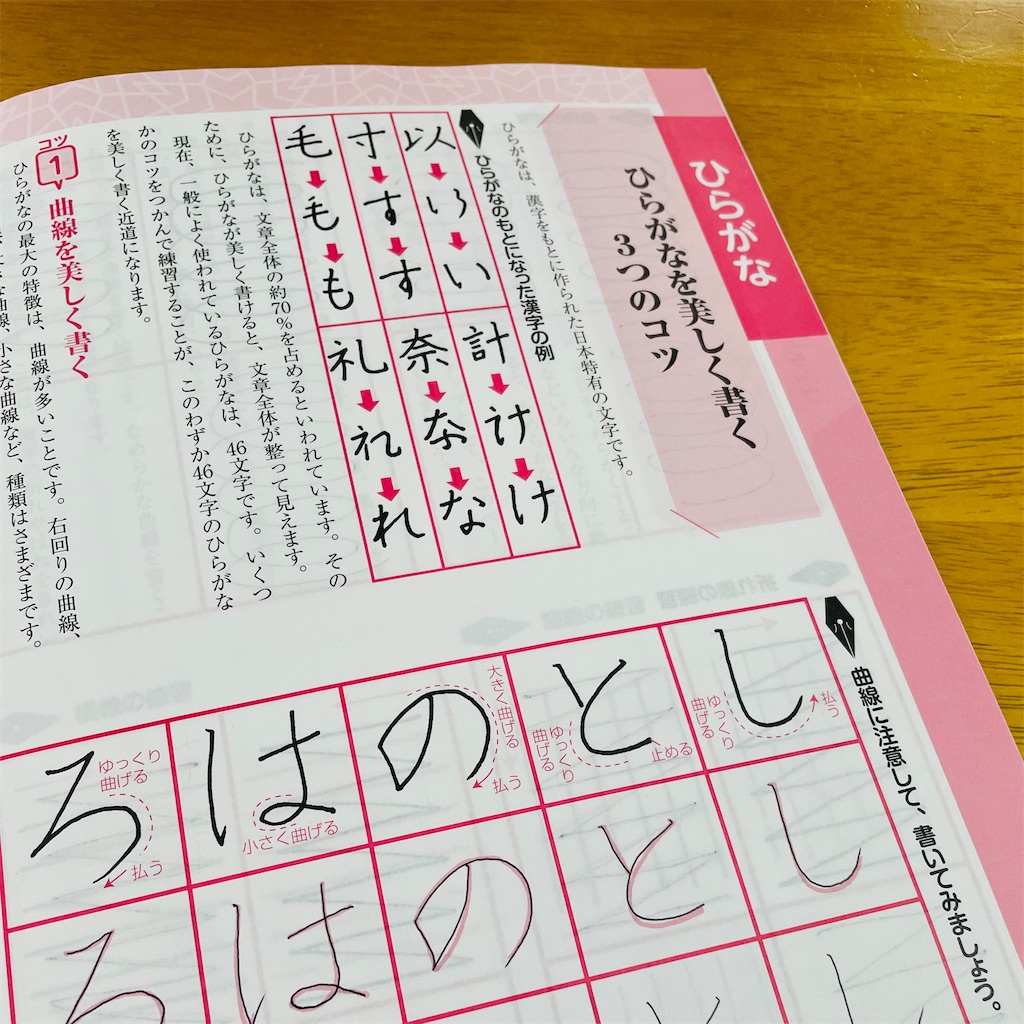 ひらがな
ひらがなを美しく書く
3つのコツ
ひらがなは、漢字をもとに作られた日本特有の文字です。
ひらがなのもとになった漢字の例
以
い
い
計
け
け
寸
す
す
奈
な
な
毛
も
も
礼
れ
れ
ひらがなは、文章全体の約70%を占めるといわれています。その
ために、ひらがなが美しく書けると、文章全体が整って見えます。
現在、一般によく使われているひらがなは、46文字です。いくつ
かのコツをつかんで練習することが、このわずか46文字のひらがな
を美しく書く近道になります。
コツ
1
曲線を美しく書く
ひらがなの最大の特徴は、曲線が多いことです。右回りの曲線、
な曲線、小さな曲線など、種類はさまざまです。
曲線に注意して、書いてみましょう。
し
ゆっくり
曲げる
払う
と
ゆっくり
曲げる
止める
の
大きく曲げる
払う
は
小さく曲げる
ろ
ゆっくり
曲げる
払う
し
と
の
は
ろ